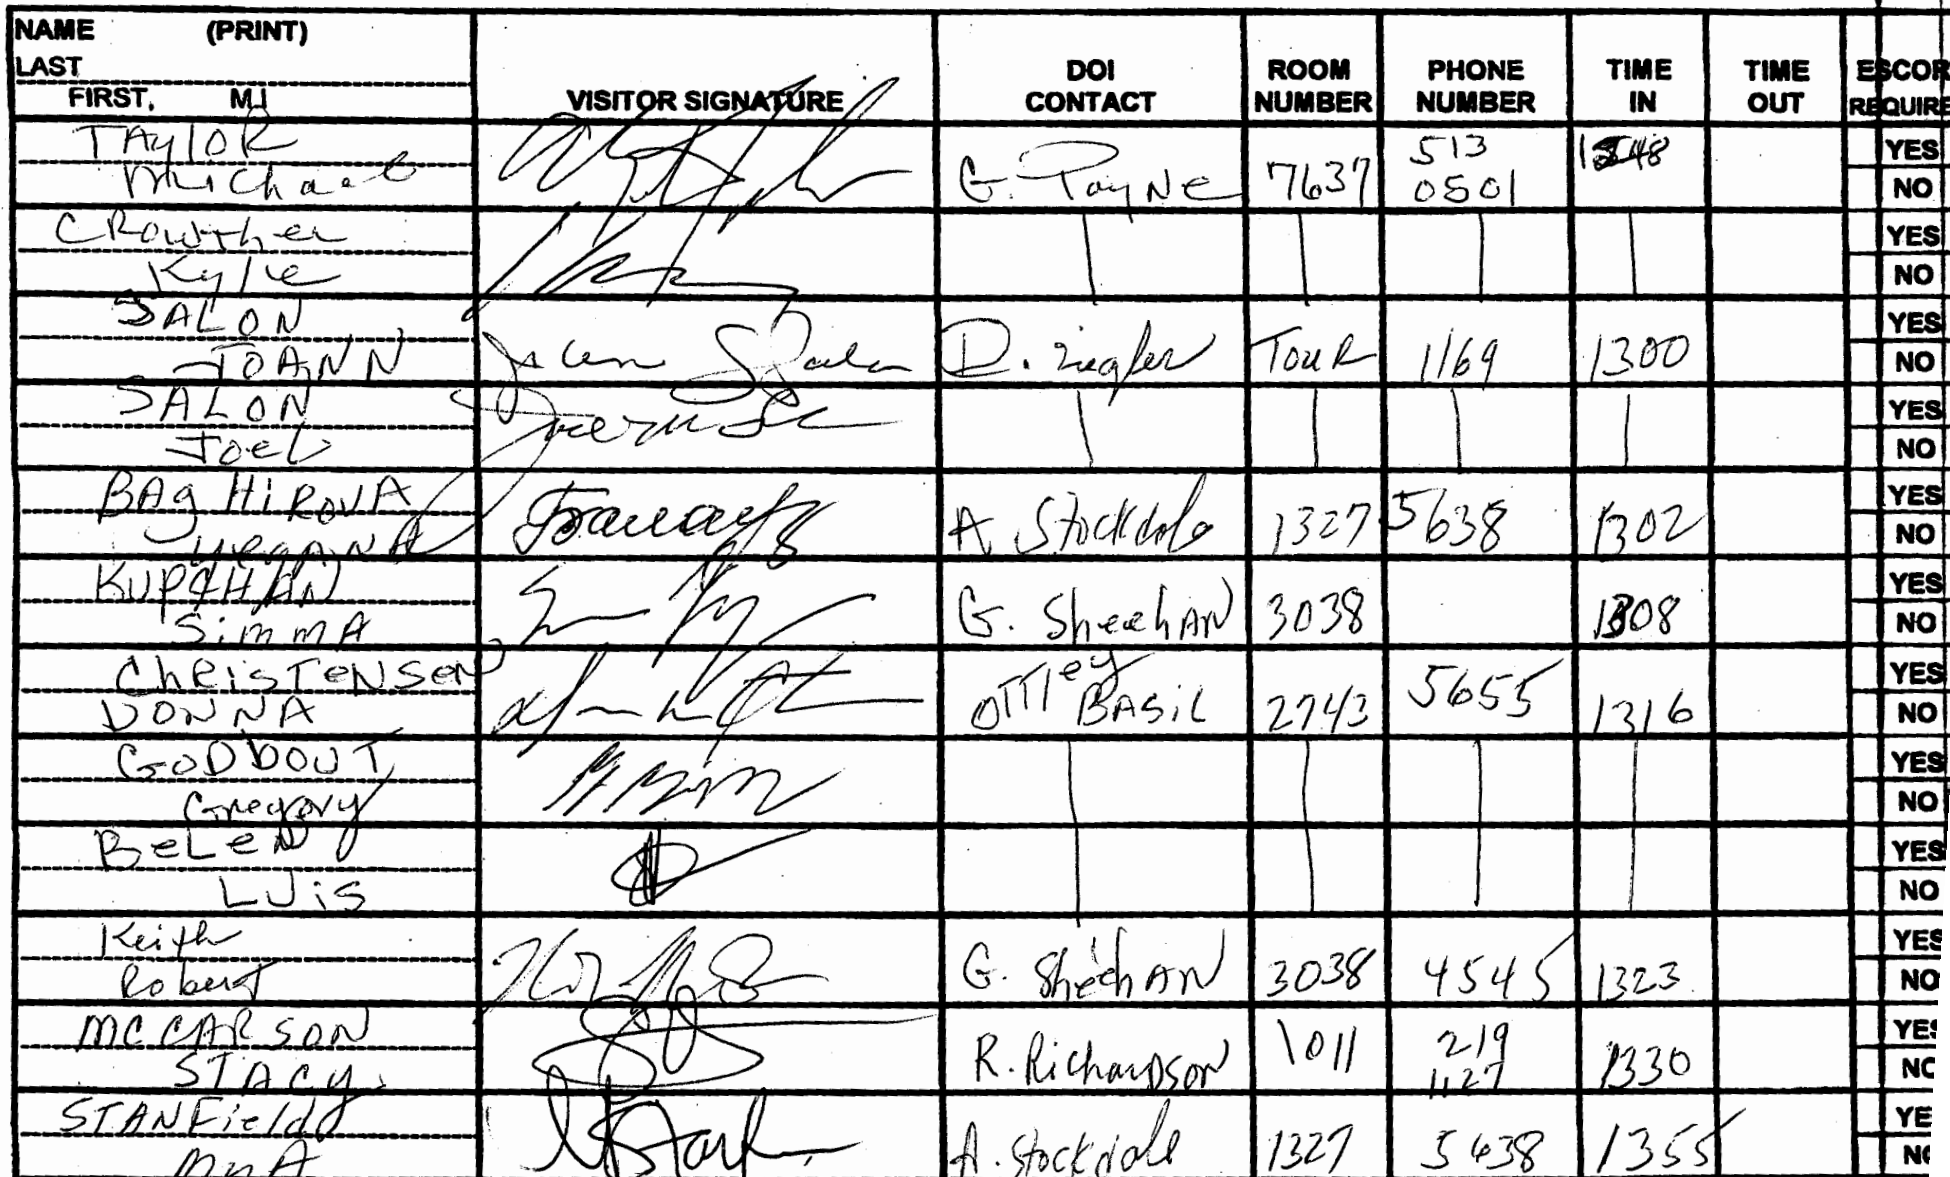 NAME (PRINT)
LAST
FIRST, MI
VISITOR SIGNATURE
DOI CONTACT
ROOM NUMBER
PHONE NUMBER
TIME IN
TIME OUT
ESCOR REQUIRE
TAylOR
Michael
G. Payne 7637 513 0501
YES
NO
CRowther
Kyle
YES
NO
SALON
JOANN
D. Ziegler Tour 1169 1300
YES
NO
SALON
Joel
YES
NO
BAgHiROVA
YegANA
A Stockdale 1327 5638 1302
YES
NO
KUPCHAN
SimmA
G. SheehAN 3038 1308
YES
NO
ChRisTeNSeN
DONNA
OTTley BASiL 2743 5655 1316
YES
NO
GODbOUT
Gregory
YES
NO
BeLeN
LUis
YES
NO
Keith
Robert
G. SheehAN 3038 4545 1323
YES
NO
MCCARSON
STACY
R. RichaRDSON 1011 219 1127 1330
YES
NO
STANField
A. Stockdale 1327 5638 1355
YE
NO